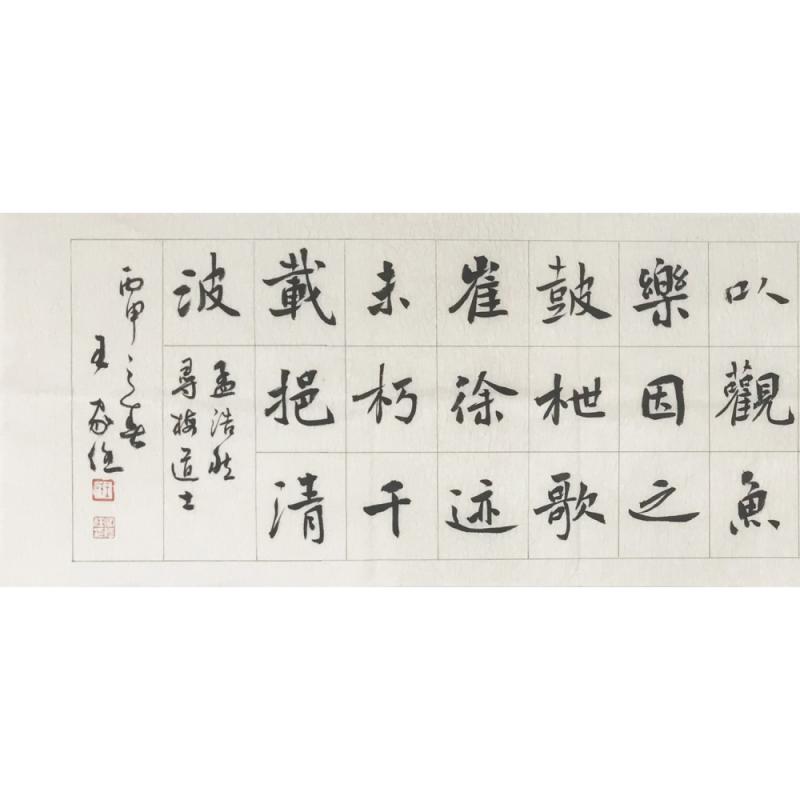 以觀魚
樂因之
鼓枻歌
崔徐迹
未朽千
載挹清
波
孟浩然
尋梅道士
丙申之春
王家